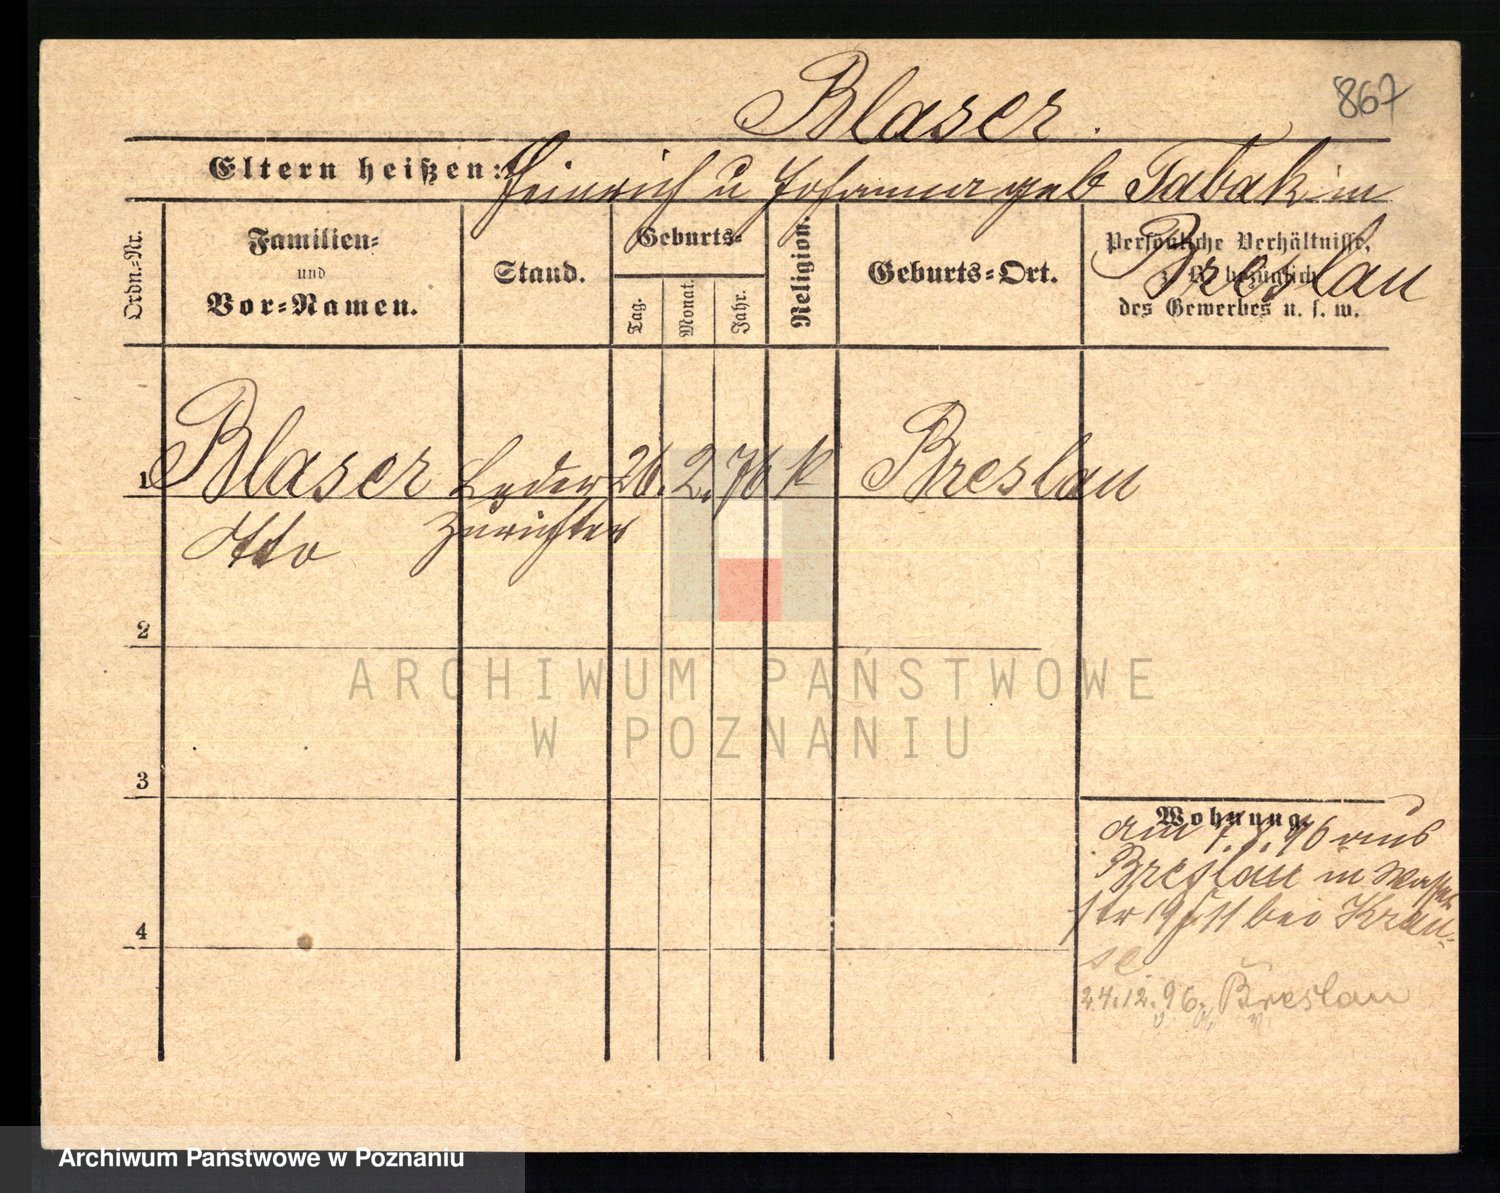 Blaser.
867
Eltern heißen: Heinrich u Johanna geb Tabak in
Breslau
Ordn.-Nr.
Familien-
und
Vor-Namen.
Stand.
Geburts-
Tag.
Monat.
Jahr.
Religion.
Geburts-Ort.
Persönliche Verhältnisse,
bezüglich
des Gewerbes u. s. w.
1 Blaser Leder 26. 2. 76 k Breslau
Otto zurichter
2
3
4
Wohnung.
am 7. 96 aus
Breslau in Wasser
str 19 bei Krau-
se
24.12.96. Breslau
ARCHIWUM PAŃSTWOWE
W POZNANIU
Archiwum Państwowe w Poznaniu